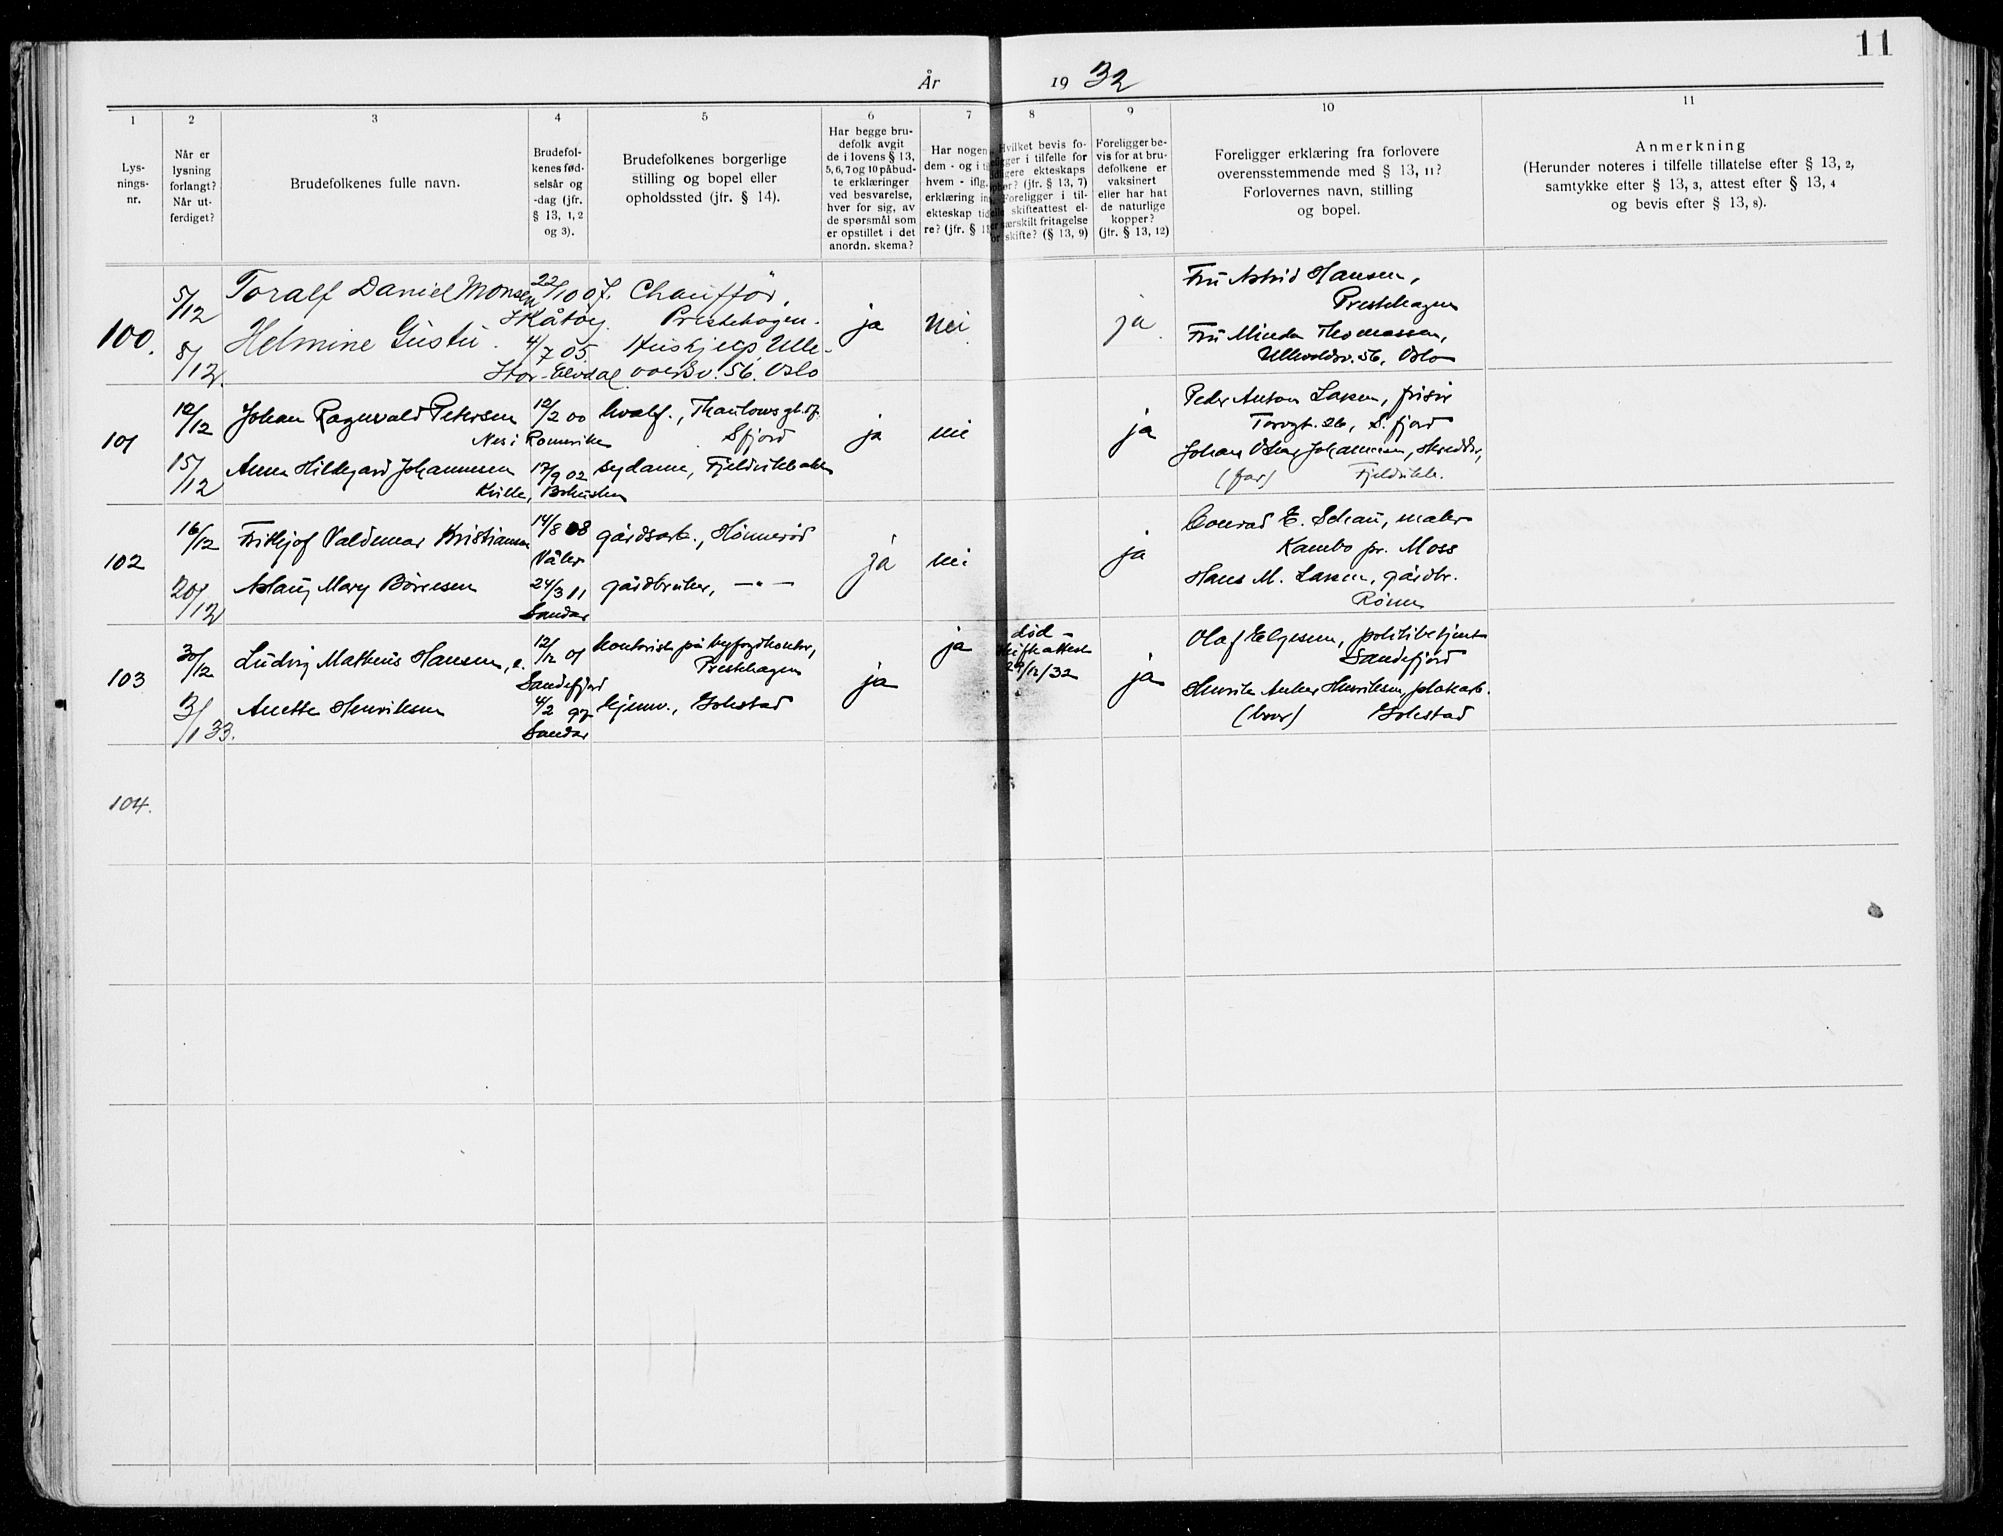 11
År 1932
1
Lys-
nings-
nr.
2
Når er
lysning
forlangt?
Når ut-
ferdiget?
3
Brudefolkenes fulle navn.
4
Brudefol-
kenes fød-
selsår og
-dag (jfr.
§ 13, 1, 2
og 3).
5
Brudefolkenes borgerlige
stilling og bopel eller
opholdssted (jfr. § 14).
6
Har begge bru-
defolk avgit
de i lovens § 13,
5, 6, 7 og 10 påbud-
te erklæringer
ved besvarelse,
hver for sig, av
de spørsmål som
er opstillet i det
anordn. skema?
7
Har nogen
dem - og i
hvem - iflg.
erklæring
ekteskap
re? (jfr. §
8
Hvilket bevis fo-
i tilfelle for
ekteskaps
(jfr. § 13, 7)
Foreligger i til-
skifteattest el-
særskilt fritagelse
skifte? (§ 13, 9)
9
Foreligger be-
vis for at bru-
defolkene er
vaksinert
eller har hat
de naturlige
kopper?
(jfr. § 13, 12)
10
Foreligger erklæring fra forlovere
overensstemmende med § 13, 11?
Forlovernes navn, stilling
og bopel.
11
Anmerkning
(Herunder noteres i tilfelle tillatelse efter § 13, 2,
samtykke efter § 13, 3, attest efter § 13, 4
og bevis efter § 13, 8).
100.
5/12
8/12.
Toralf Daniel Monsen 22/10 07. Chauffør,
Skåtøy. Prestehagen.
Helmine 4/7 05. Ulle-
Stor-Elvdal 56. Oslo
ja nei ja.
Fru Astrid Hansen,
Prestehagen
Fru Minda Thomassen,
Ullevoldsv. 56, Oslo
101
12/12
15/12
Johan Ragnvald Petersen 12/2 00 hvalf., Thaulows gt. 17.
Nes i Romerike Sfjord
Anna Hildegard Johannesen 17/9 02 sydame, Fjeldvikbakken
Kville, Bohuslen
ja nei ja
Peder Anton Larsen, frisør
Torvgt. 26, S.fjord
Johan Oskar Johannesen, skredder,
(far) Fjeldvikbk.
102
16/12
20/12
Frithjof Valdemar Kristiansen 14/8 08 gårdsarb., Hønnerød
Våler
Aslaug Mary Børresen 24/3 11 gårdbruker, —"—
Sandar
ja nei ja
Conrad E. Schau, maler
Kambo pr. Moss
Hans M. Larsen, gårdbr.
103
30/12
3/1 33.
Ludvig Matheus Hansen, e. 12/12 01 kontorist på byfogdkontor,
Sandefjord Prestehagen
Anette Henriksen 4/2 97 hjemv., Gokstad
Sandar
ja ja død -
skifteattest
29/12/32
ja
Olaf Elgesem, politibetjent
Sandefjord
Henrik Anker Henriksen, platearb.
(bror) Gokstad
104.